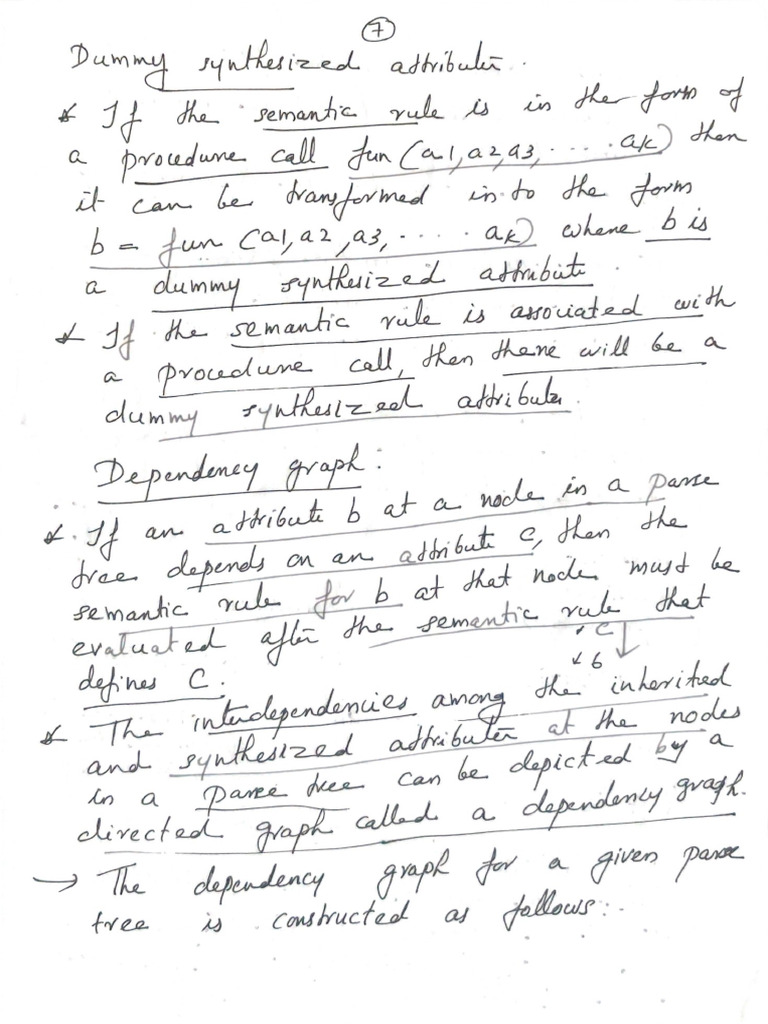 7
Dummy synthesized attributes.
* If the semantic rule is in the form of
a procedure call fun (a1, a2, a3, ..... ak) then
it can be transformed in to the form
b = fun (a1, a2, a3, ..... ak) where b is
a dummy synthesized attribute.
* If the semantic rule is associated with
a procedure call, then there will be a
dummy synthesized attribute.
Dependency graph:
* If an attribute b at a node in a parse
tree depends on an attribute c, then the
semantic rule for b at that node must be
evaluated after the semantic rule that
defines C.
C ↓
b
* The interdependencies among the inherited
and synthesized attributes at the nodes
in a parse tree can be depicted by a
directed graph called a dependency graph.
→ The dependency graph for a given parse
tree is constructed as follows:-